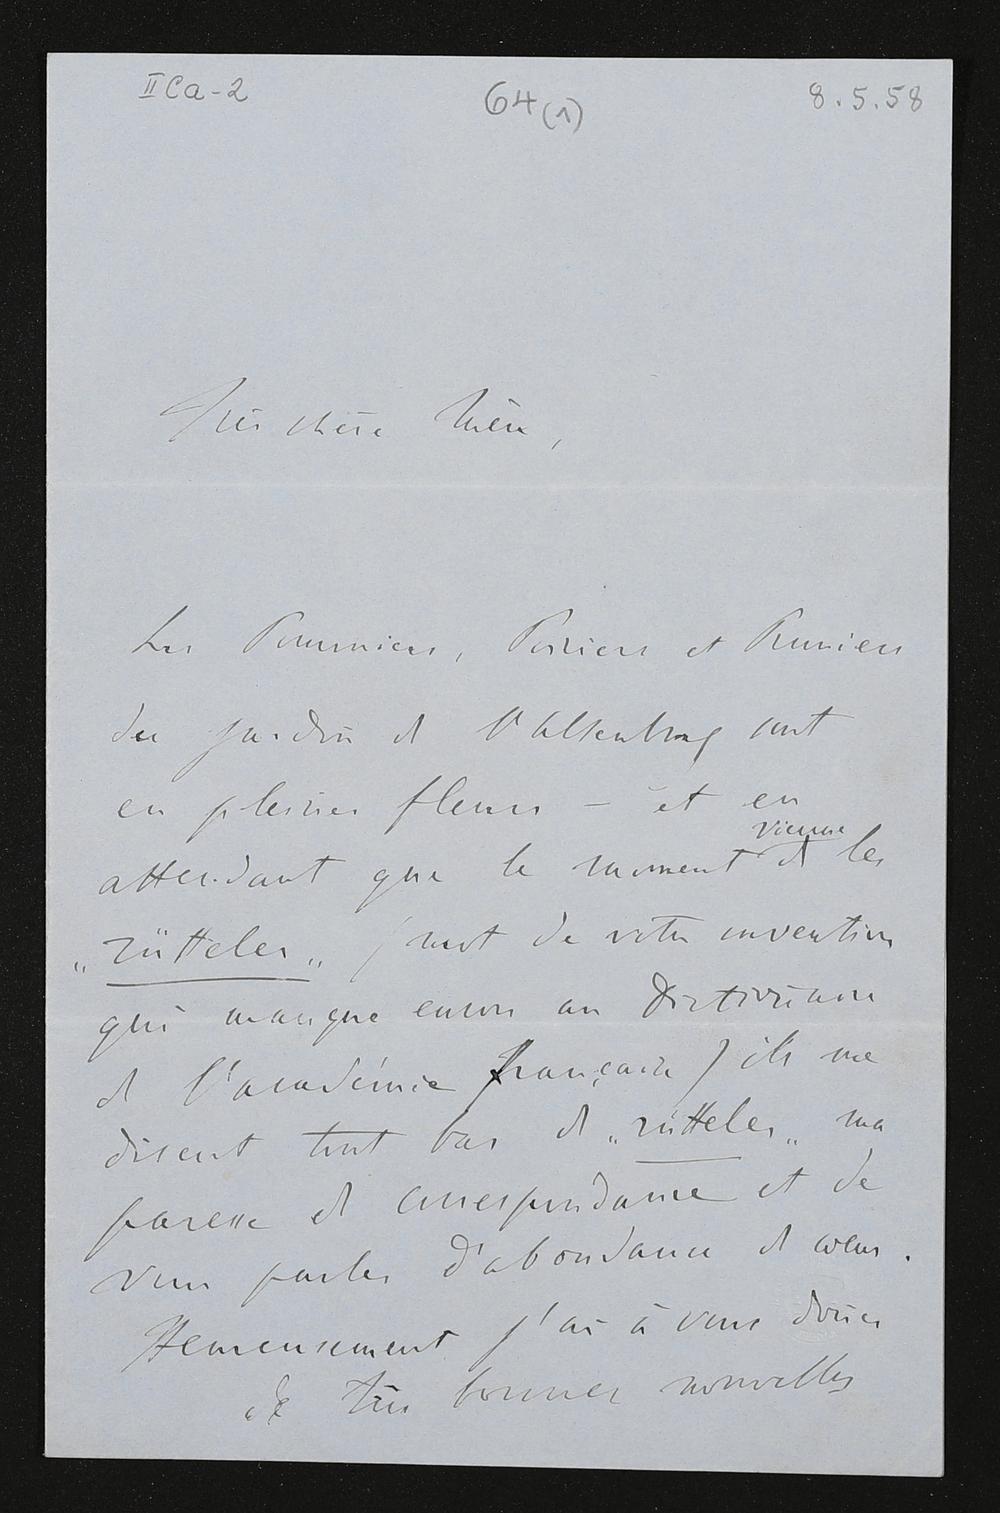 II Ca-2
64(1)
8.5.58
Très chère Mère,
Les Pommiers, Poiriers et Pruniers
du jardin de l'Altenburg sont
en pleines fleurs – et en
attendant que le moment vienne de les
„rütteler„ (mot de votre invention
qui manque encore au Dictionnaire
de l'académie française) ils me
disent tout bas de „rütteler„ ma
paresse de correspondance et de
vous parler d'abondance de coeur.
Heureusement j'ai à vous donner
de très bonnes nouvelles